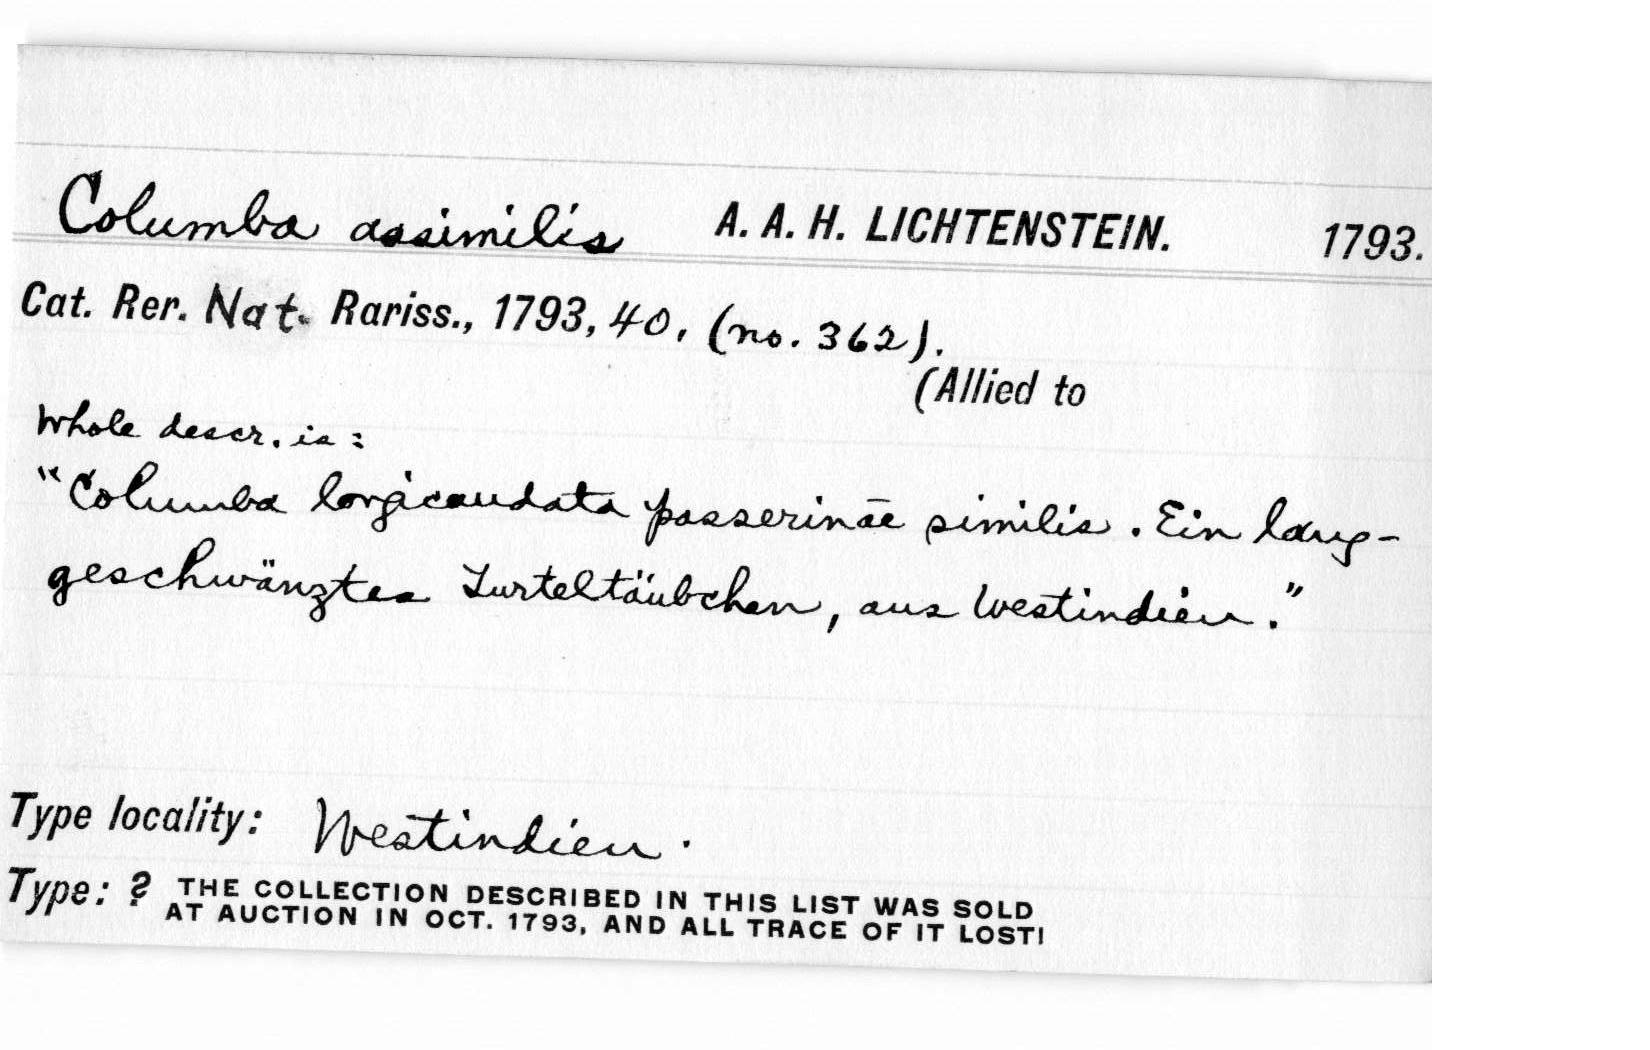 Columba assimilis A. A. H. LICHTENSTEIN. 1793.
Cat. Rer. Nat. Rariss., 1793, 40, (no. 362).
(Allied to
Whole descr. is:
"Columba longicaudata passerinae similis. Ein lang-
geschwänztes Turteltäubchen, aus Westindien."
Type locality: Westindien.
Type: ? THE COLLECTION DESCRIBED IN THIS LIST WAS SOLD
AT AUCTION IN OCT. 1793, AND ALL TRACE OF IT LOST!